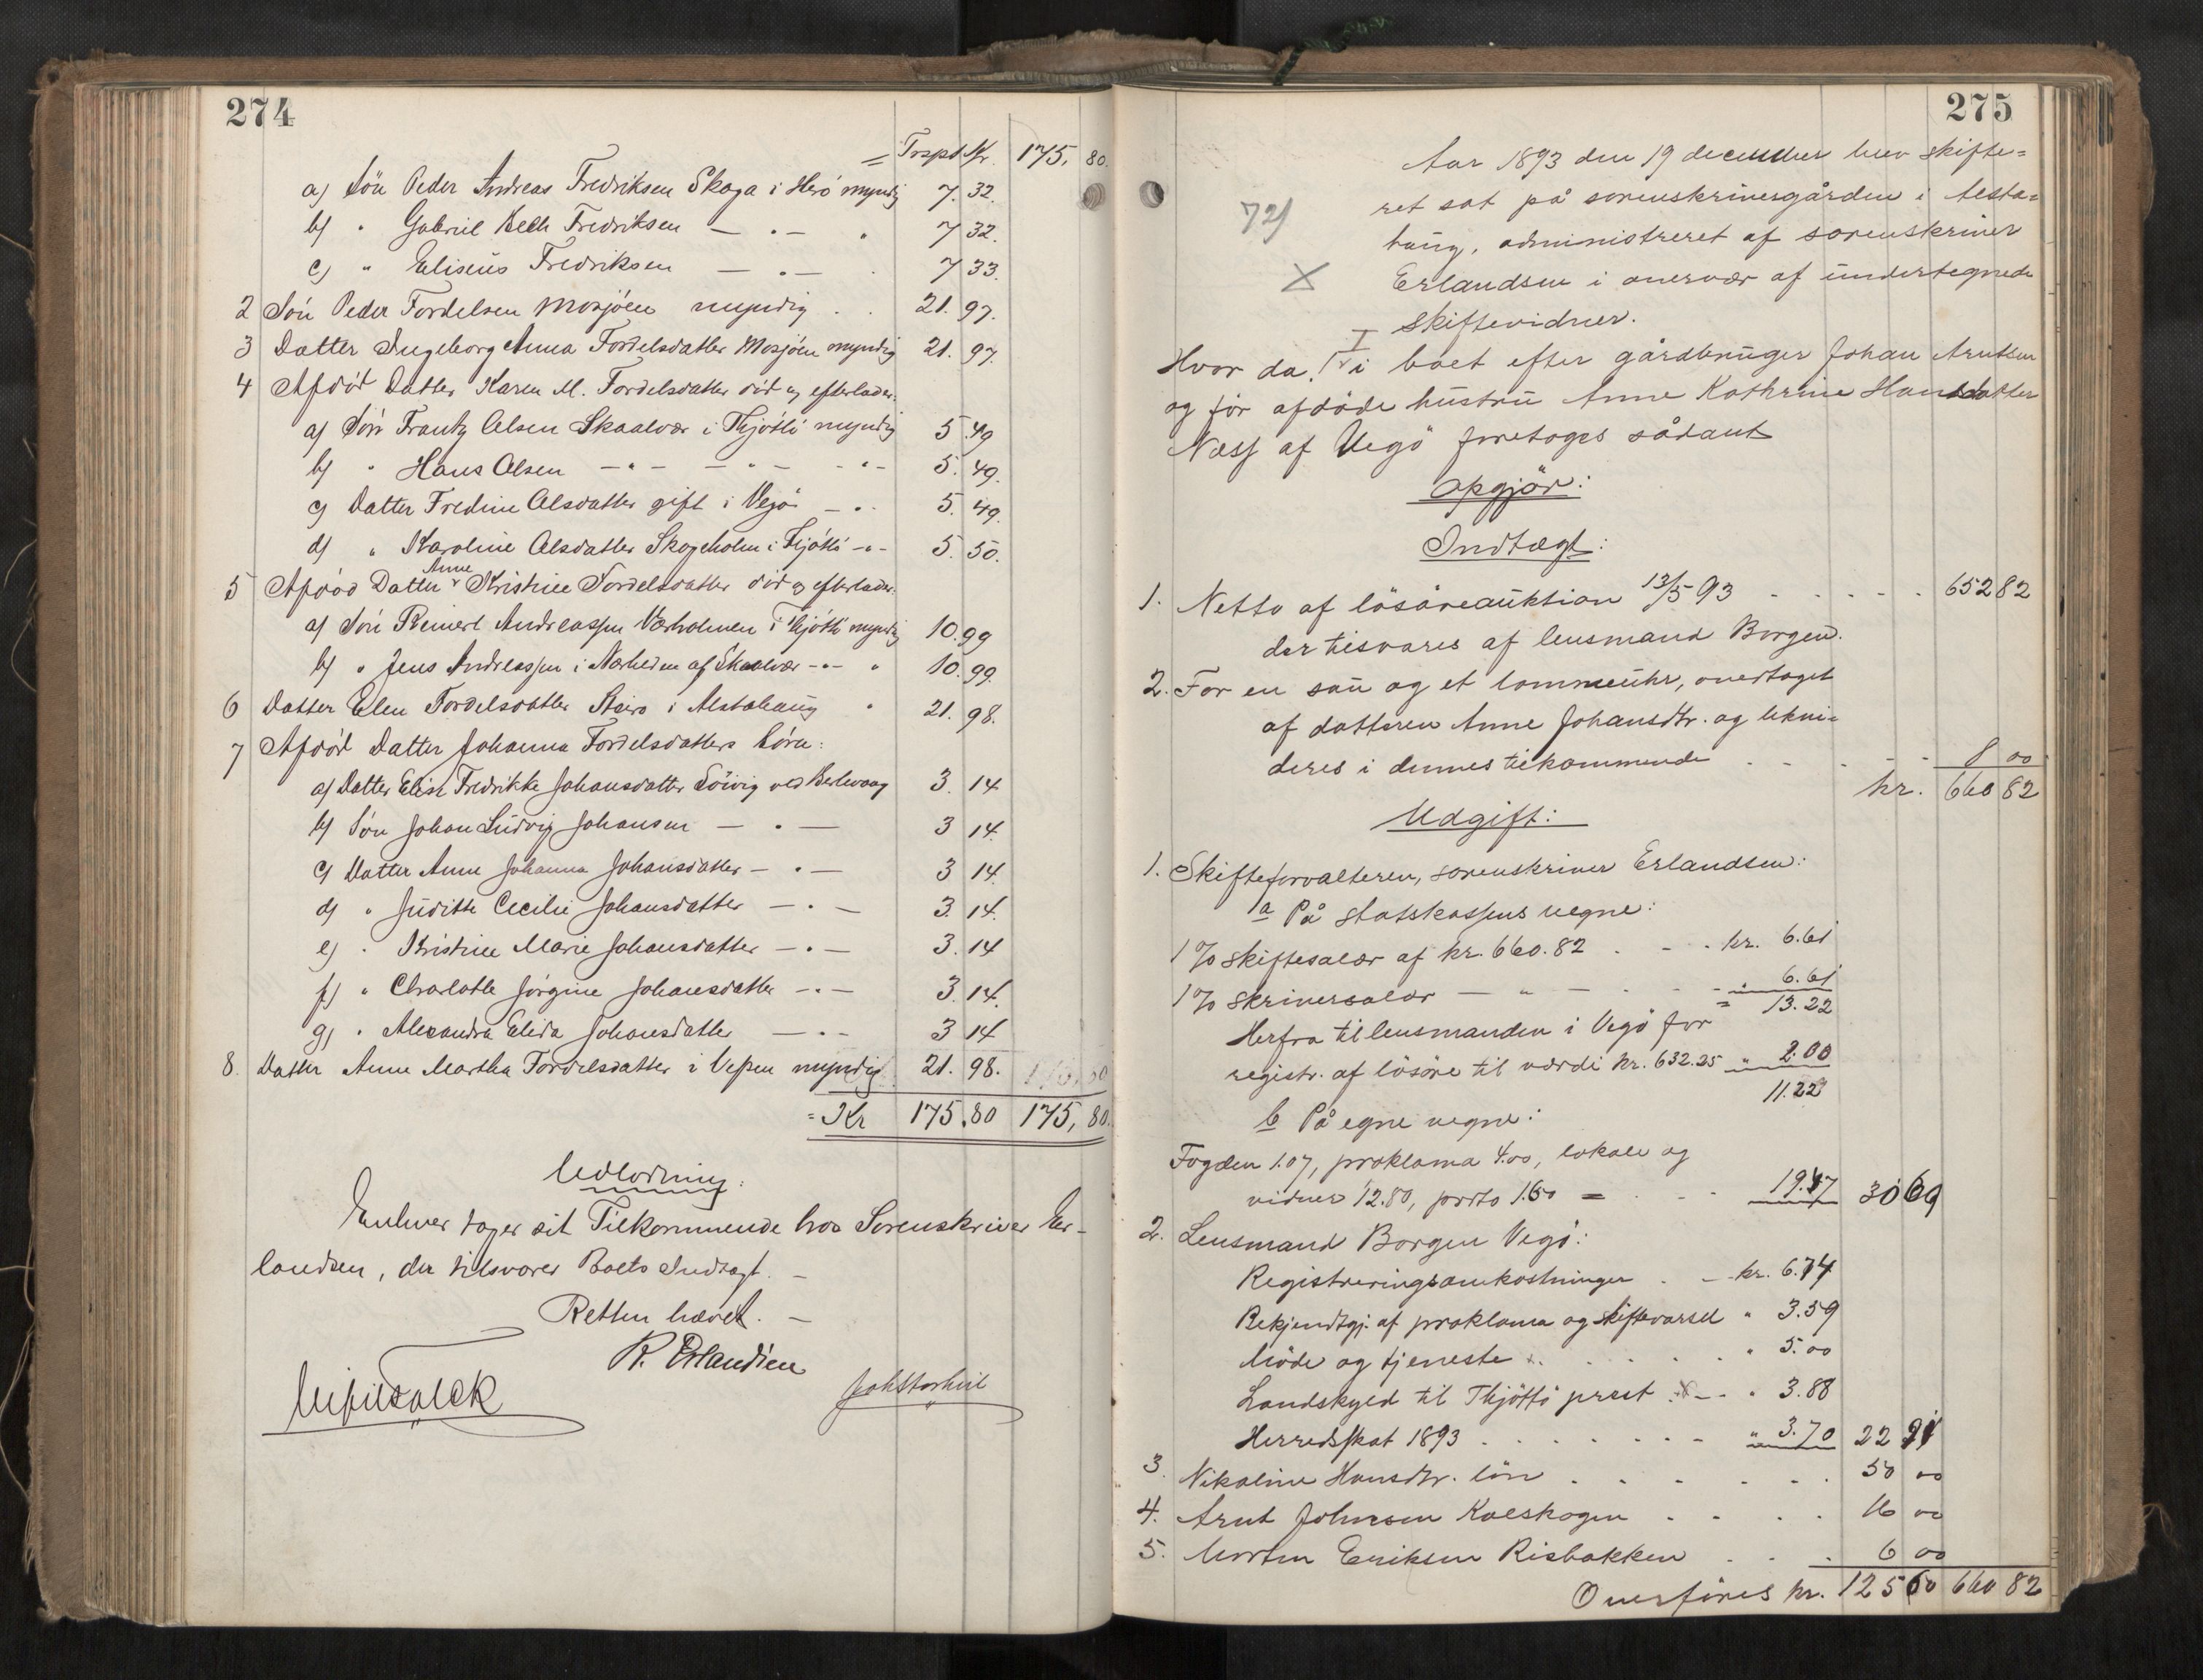 274
= Trspt Kr. 175, 80.
a) Sön Peder Andreas Fredriksen Skaga i Herö myndig 7. 32.
b) " Gabriel Fredriksen — " — " 7 32.
c) " Eliseus Fredriksen — " — " 7 33.
2 Sön Peder Fordelsen Mosjöen myndig . . 21. 97.
3 Datter Ingeborg Anna Fordelsdatter Mosjöen myndig 21. 97.
4 Afdöd Datter Karen M. Fordelsdatter död og efterlader:
a) Sön Frantz Olsen Skaalvær i Thjöttö myndig 5 49
b) " Hans Olsen — " — — " — - " - 5. 49.
c) Datter Fredine Olsdatter gift i Vegö — " - 5. 49.
d) " Karoline Olsdatter Skogsholm i Tjöttö - " - 5. 50.
5 Afdöd Datter Anne Kristine Fordelsdatter död og efterlader:
a) Sön Reinert Andreassen Værholmen i Thjöttö myndig 10. 99
b) " Jens Andreassen i Nærheden af Skaalvær - " - " 10. 99.
6 Datter Elen Fordelsdatter i Alstahaug " 21. 98.
7 Afdöd Datter Johanna Fordelsdatters börn:
a) Datter Elise Fredrikke Johansdatter Sövig ved 3. 14
b) Sön Johan Ludvig Johansen — " — 3 14.
c) Datter Anne Johanna Johansdatter — " — 3 14.
d) " Juditte Cecilie Johansdatter — " — 3. 14.
e) " Kristine Marie Johansdatter — " — 3. 14
f) " Charlotte Jörgine Johansdatter — " — 3. 14.
g) " Alexandra Elida Johansdatter — " — 3 14
8. Datter Anne Martha Fordelsdatter i Vefsen myndig 21. 98.
= Kr 175.80 175, 80.
Udlodning:
Enhver tager sit Tilkommende hos Sorenskriver Er-
landsen, der tilsvarer Boets Indtægt. —
Retten hævet. —
R. Erlandsen
275
Aar 1893 den 19 december blev skifte=
ret sat på sorenskrivergården i Alsta=
72)
haug, administreret af sorenskriver
X Erlandsen i overvær af undertegnede
skiftevidner.
I
Hvor da: i boet efter gårdbruger Johan Arntsen
og för afdöde hustru Anne Kathrine Hansdatter
Næss af Vegö foretages sådant
opgjör:
Indtægt:
1. Netto af lösöreauktion 13/5 93 . . . . . 652 82
der tilsvares af lensmand Borgen.
2. For en sau og et lommeuhr, overtaget
af datteren Anne Johansdtr. og likvi=
deres i dennes tilkommende . . . . . 8 00
kr. 660 82
Udgift:
1. Skifteforvalteren, sorenskriver Erlandsen:
a På statskassens vegne:
1% skiftesalær af kr. 660.82 . . . kr. 6.61
1% skriversalær — " — . . . " 6.61
= 13.22
Herfra til lensmanden i Vegö for
registr. af lösöre til værdi kr. 632.25 " 2.00
11.22
b På egne vegne:
Fogden 1.07, proklama 4.00, lokale og
vidner 12.80, porto 1.60 = . . . 19.47 30 69
2. Lensmand Borgen Vegö:
Registreringsomkostninger . . kr. 6.74
Bekjendtgj. af proklama og skiftevarsel " 3.59
Möde og tjeneste . . . . . . " 5.00
Landskyld til Thjöttö prest . . . " 3.88
Herredsskat 1893 . . . . . . . " 3.70 22 91
3. Nikoline Hansdtr. lön . . . . . . 50 00
4. Arnt Johnsen Kolskogen . . . . 16 00
5. Morten Eriksen Risbakken . . . 6 00
Overföres kr. 125 60 660 82